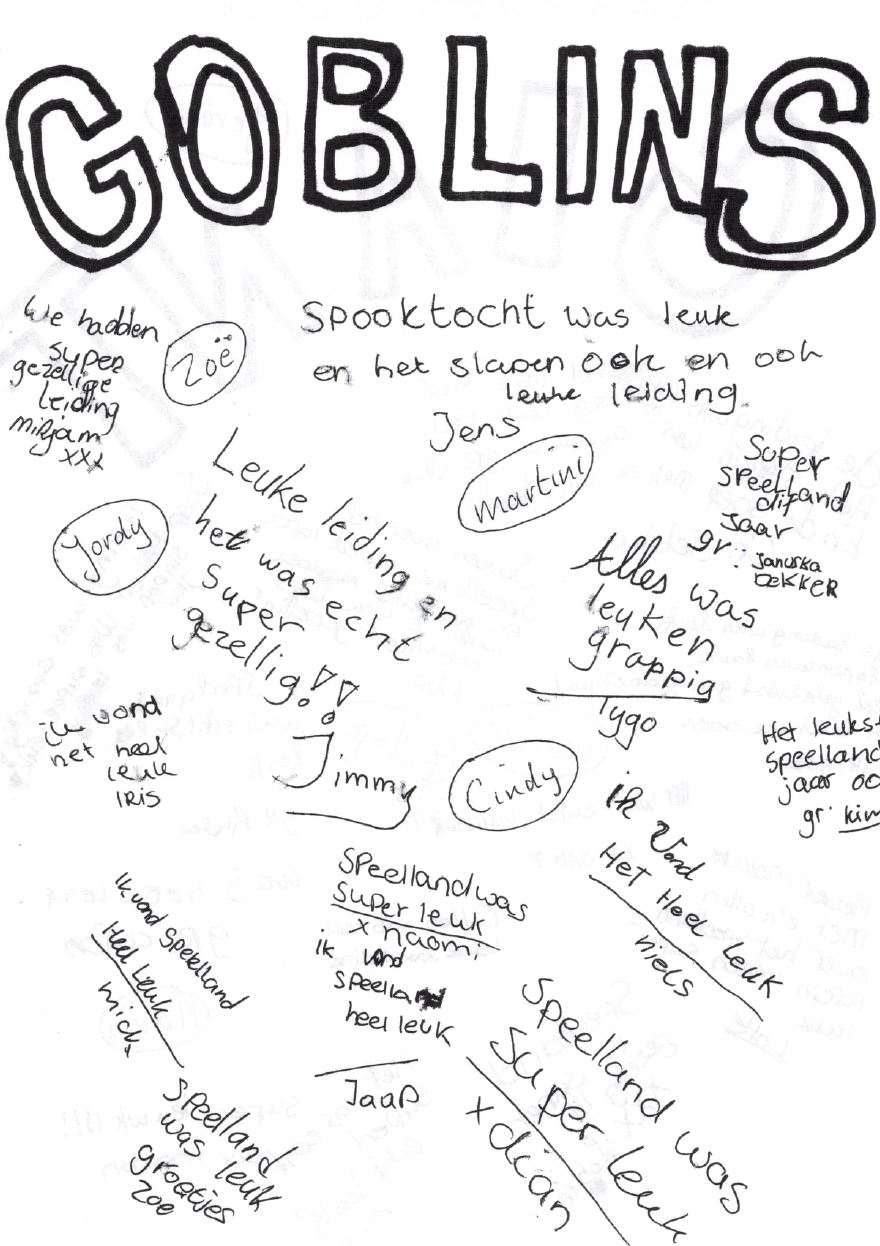 GOBLINS
We hadden
super
gezellige
leiding
mirjam
xxx
Zoë
Spooktocht was leuk
en het slapen ook en ook
leuke leiding
Jens
martini
Super
speelland
dit
Jaar
gr:
Januska
DEKKER
Jordy
Leuke leiding en
het was echt
super
gezellig!!
Jimmy
Alles was
leuk en
grappig
Tygo
ik vond
het heel
leuk
IRIS
Cindy
Het leukst
speelland
jaar oo
gr. kim
ik vond
HET HEEL LEUK
niels
Ik vond speelland
Heel leuk
mick
Speelland was
super leuk
x naomi
ik vond
speelland
heel leuk
Jaap
Speelland was
super leuk
x dian
Speelland
was leuk
groetjes
zoe